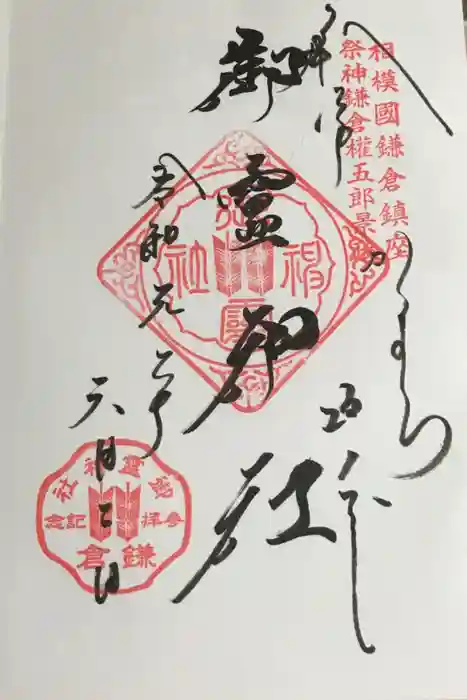 相模國鎌倉鎮座
祭神鎌倉權五郎景
御靈神社
令和元年
六月二日
御靈神社
御靈神社
参拝記念
鎌倉